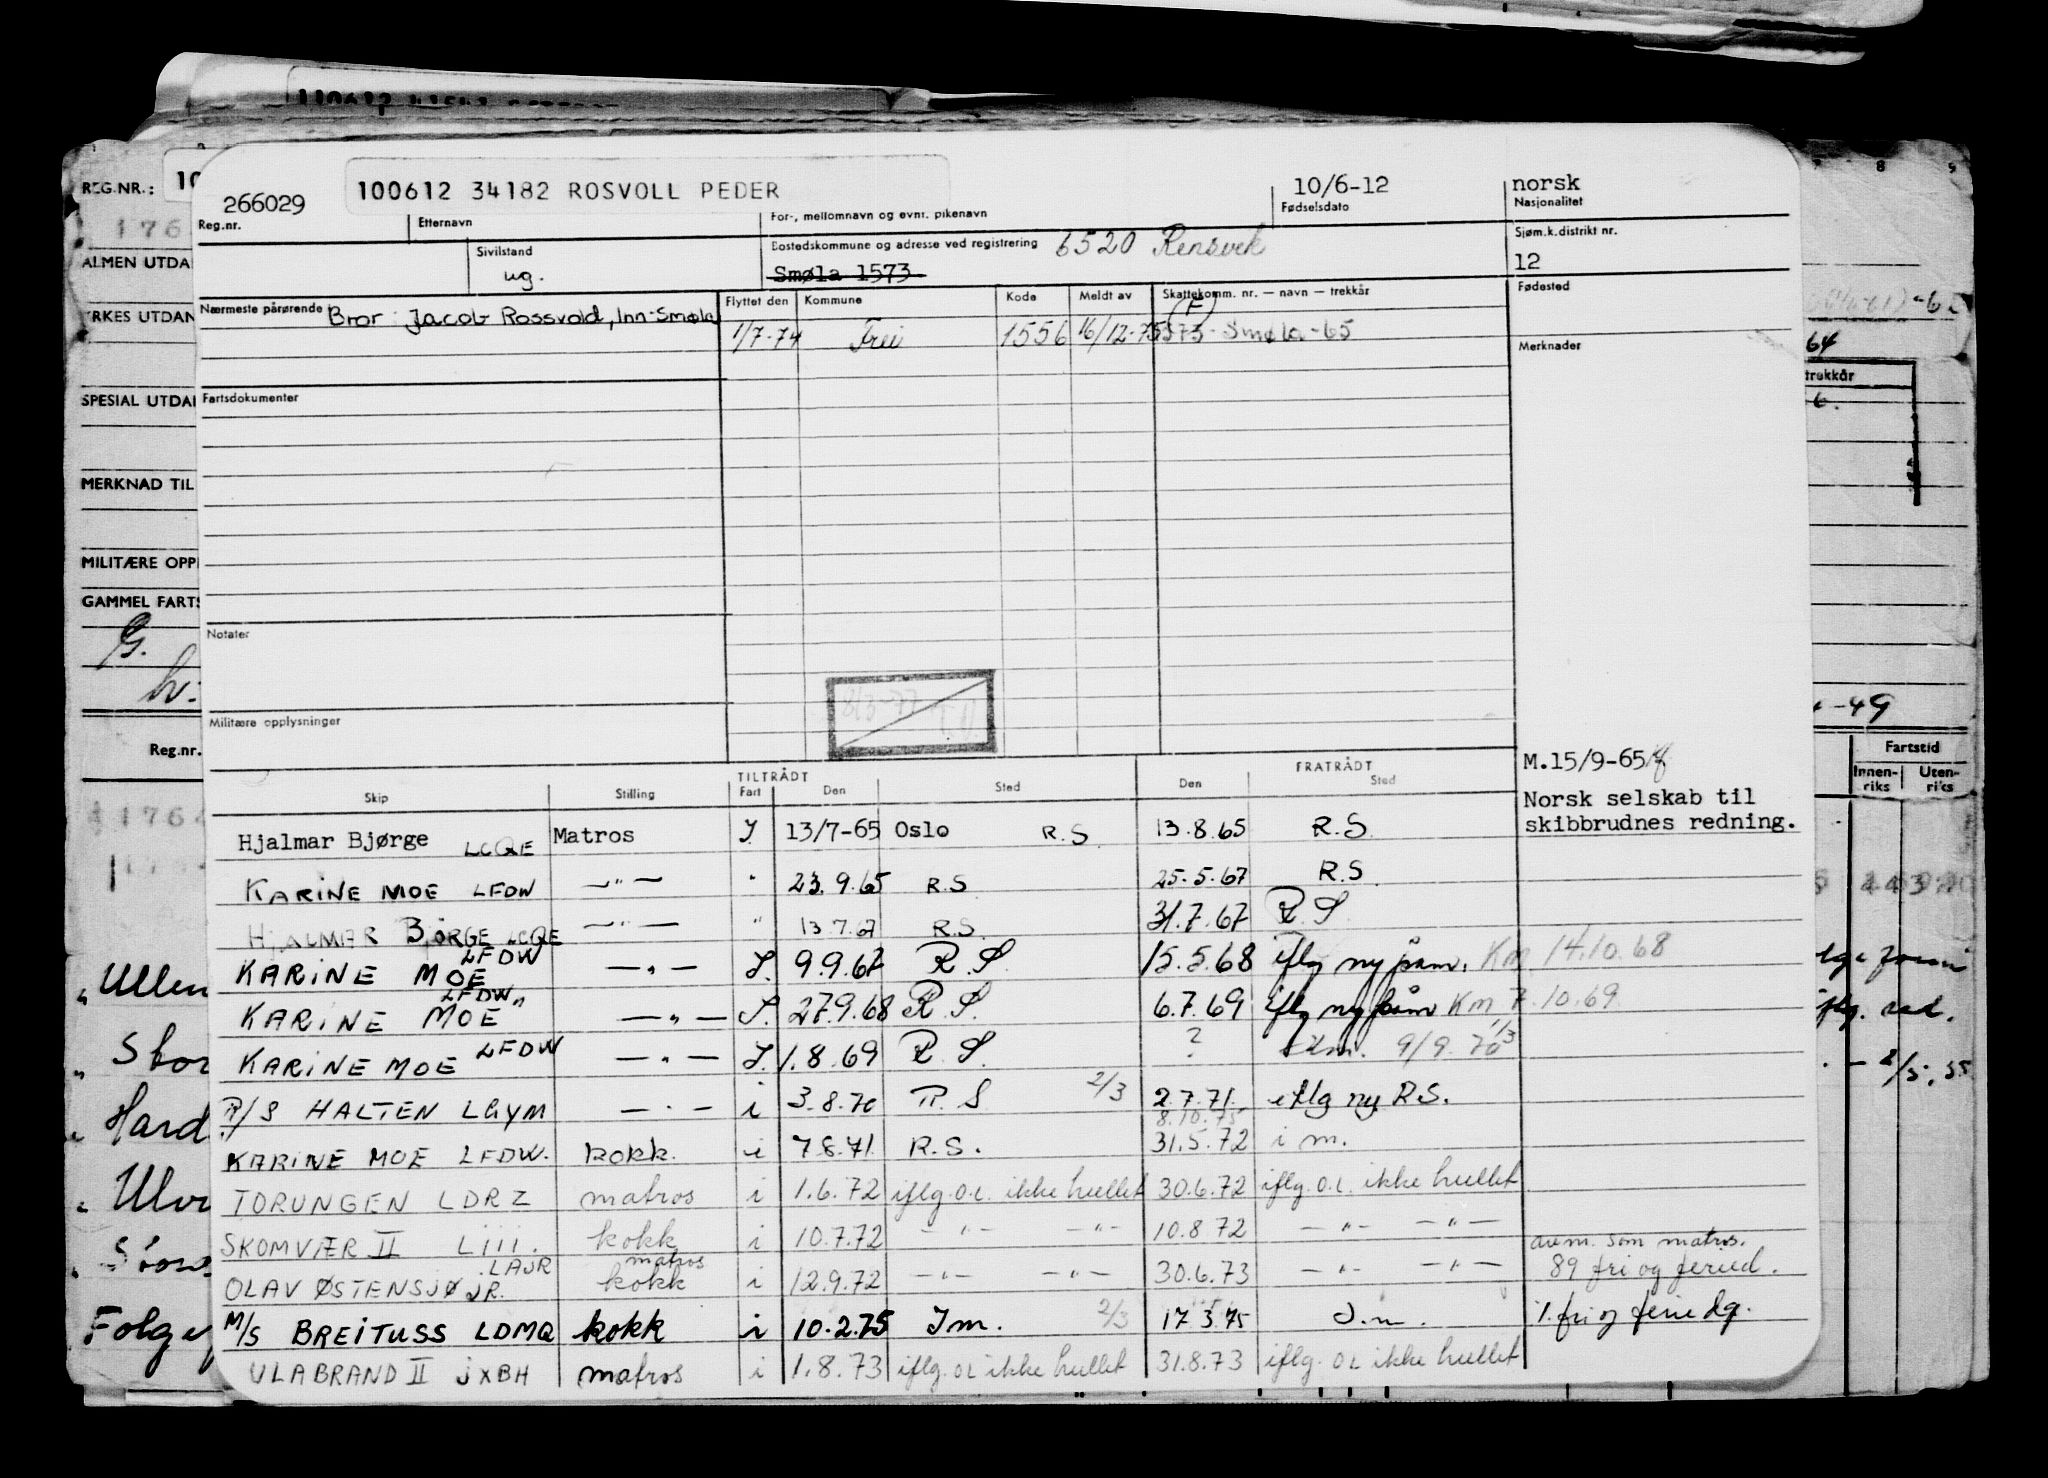 REG.NR.:
266029 100612 34182 ROSVOLL PEDER 10/6-12 norsk
Reg.nr. Etternavn For-, mellomnavn og evnt. pikenavn Fødselsdato Nasjonalitet
Sivilstand Bostedskommune og adresse ved registrering 6520 Rensvik Sjøm.k.distrikt nr.
ug. Smøla 1573 12
Nærmeste pårørende Bror: Jacob Rossvold, Inn-Smøla Flyttet den Kommune Kode Meldt av Skattekomm. nr. — navn — trekkår Fødested
(F)
1/7-74 Frei 1556 16/12-75 1573 - Smøla -65
Merknader
Fartsdokumenter
Notater
8/3-77
Militære opplysninger
M.15/9-65
Norsk selskab til
skibbrudnes redning.
TILTRÅDT FRATRÅDT
Skip Stilling Fart Den Sted Den Sted
Hjalmar Bjørge LCQE Matros I. 13/7-65 Oslo R.S. 13.8.65 R.S.
KARINE MOE LFDW —"— " 23.9.65 R.S 25.5.67 R.S.
HJALMAR BJØRGE LCQE —"— " 13.7.67 R.S. 31.7.67 R.S.
KARINE MOE LFDW —"— I. 9.9.67 R.S. 15.5.68 iflg ny påm. Km 14.10.68
KARINE MOE LFDW —"— I. 27.9.68 R.S. 6.7.69 iflg ny påm Km 7.10.69
KARINE MOE LFDW —"— I. 1.8.69 R.S. ? Km. 9/9.70
R/S HALTEN LGYM —"— i 3.8.70 R.S 2/3 2.7.71. iflg ny R.S.
8.10.75
KARINE MOE LFDW. kokk. i 7.8.71. R.S. 31.5.72 i m.
TORUNGEN LDRZ matros i 1.6.72 iflg. o.l. ikke hullet 30.6.72 iflg. o.l. ikke hullet
SKOMVÆR II LIII. kokk i 10.7.72 —"— —"— 10.8.72 —"— —"—
OLAV ØSTENSJØ JR. LAJR matros kokk i 12.9.72 —"— —"— 30.6.73 —"— —"— avm. som matros.
89 fri og feried.
M/S BREITUSS LDMQ kokk i 10.2.75 Im. 2/3 17.3.75 I.m. 1. fri og ferie dg.
ULABRAND II JXBH matros i 1.8.73 iflg. OL ikke hullet 31.8.73 iflg. OL ikke hullet
ALMEN UTDA
YRKES UTDAN
SPESIAL UTDAN
MERKNAD TIL
MILITÆRE OPPL
GAMMEL FARTS
G.
Reg.nr.
Ullen
Stor
Hard
Ulv
Folge
64
trekkår
-49
Fartstid
Innen-
riks
Uten-
riks